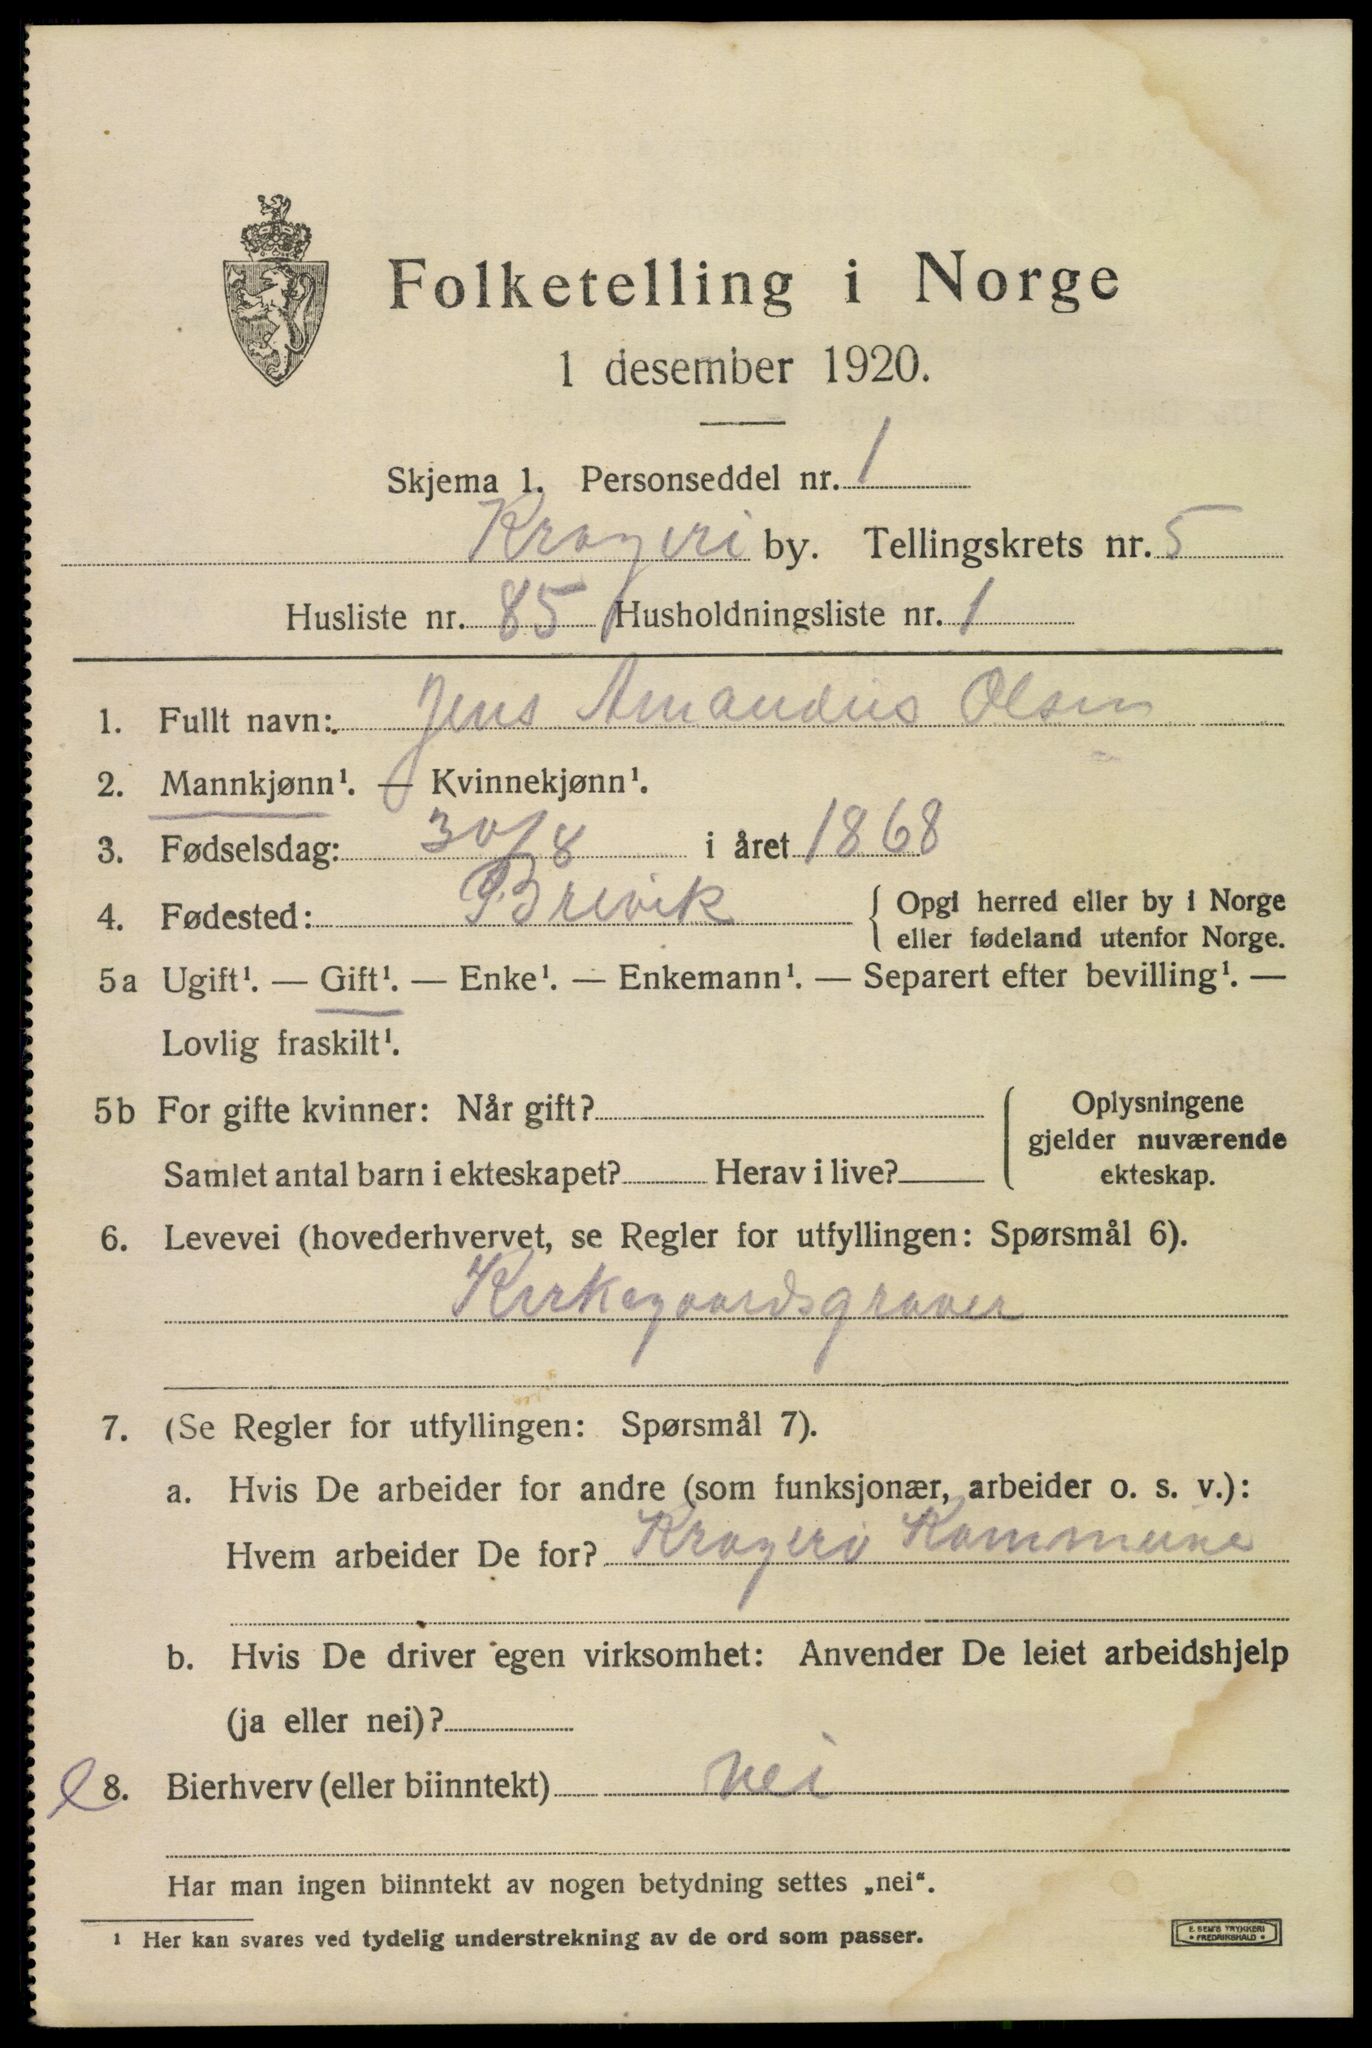 Folketelling i Norge
1 desember 1920.
Skjema 1. Personseddel nr. 1
Kragerö by. Tellingskrets nr. 5
Husliste nr. 85 Husholdningsliste nr. 1
1. Fullt navn: Jens Amandus Olsen
2. Mannkjønn¹. — Kvinnekjønn¹.
3. Fødselsdag: 30/8 i året 1868
4. Fødested: Brevik { Opgi herred eller by i Norge
eller fødeland utenfor Norge.
5a Ugift¹. — Gift¹. — Enke¹. — Enkemann¹. — Separert efter bevilling¹. —
Lovlig fraskilt¹.
5b For gifte kvinner: Når gift? Oplysningene
gjelder nuværende
Samlet antal barn i ekteskapet? Herav i live? ekteskap.
6. Levevei (hovederhvervet, se Regler for utfyllingen: Spørsmål 6).
Kirkegaardsgraver
7. (Se Regler for utfyllingen: Spørsmål 7).
a. Hvis De arbeider for andre (som funksjonær, arbeider o. s. v.):
Hvem arbeider De for? Kragerö Kommune
b. Hvis De driver egen virksomhet: Anvender De leiet arbeidshjelp
(ja eller nei)?
8. Bierhverv (eller biinntekt) nei
Har man ingen biinntekt av nogen betydning settes „nei“.
¹ Her kan svares ved tydelig understrekning av de ord som passer.
E. SEM'S TRYKKERI
• FREDRIKSHALD •